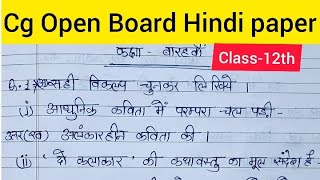 Cg Open Board Hindi paper
कक्षा - बारहवीं
Class-12th
सही विकल्प चुनकर लिखिये ।
(i) आधुनिक कविता में परम्परा चल पड़ी -
उत्तर (ख) अलंकारहीन कविता की ।
(ii) ' दो कलाकार ' की कथावस्तु का मूल संदेश है -